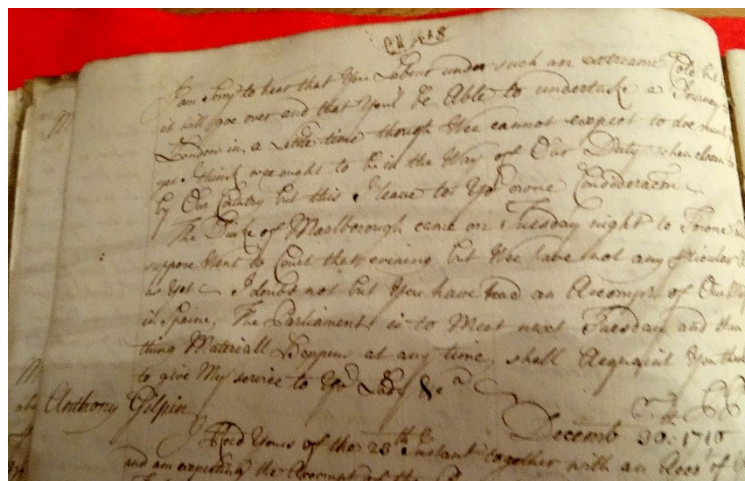 I am Sorry to hear that You Labour under such an extreame Cold but
it will goe over and that You'l be Able to undertake a Journey to
London in a Little time though Wee cannot expect to doe much
yet I think we ought to be in the Way of Our Duty when chosen
by Our Country but this I leave to Yor owne Consideracon
The Duke of Marlborough came on Tuesday night to Towne
suppose Went to Court that evening but Wee have not any
as yet I doubt not but You have read an Accompt of Our
in Spaine, The Parliament is to Meet next Tuesday and
thing Materiall Happens at any time, shall Acquaint You
to give My service to Yor Lady &ca
Anthony Gilpin
Decemb 30th 1710
Recd Yours of the 23th Instant together with an Acct of
and am expecting the Account of the